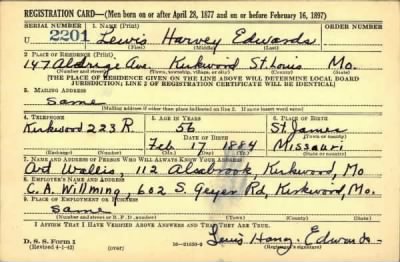 REGISTRATION CARD—(Men born on or after April 28, 1877 and on or before February 16, 1897)
SERIAL NUMBER 1. NAME (Print) ORDER NUMBER
U 2201 Lewis Harvey Edwards
(First) (Middle) (Last)
2. PLACE OF RESIDENCE (Print)
147 Aldrige Ave. Kirkwood St. Louis Mo.
(Number and street) (Town, township, village, or city) (County) (State)
[THE PLACE OF RESIDENCE GIVEN ON THE LINE ABOVE WILL DETERMINE LOCAL BOARD
JURISDICTION; LINE 2 OF REGISTRATION CERTIFICATE WILL BE IDENTICAL]
3. MAILING ADDRESS
Same
[Mailing address if other than place indicated on line 2. If same insert word same]
4. TELEPHONE 5. AGE IN YEARS 6. PLACE OF BIRTH
Kirkwood 223 R. 56 St. James
DATE OF BIRTH
Feb 17 1884 Missouri
(Mo.) (Day) (Yr.) (State or country)
7. NAME AND ADDRESS OF PERSON WHO WILL ALWAYS KNOW YOUR ADDRESS
Art Wallis, 112 Alsobrook, Kirkwood, Mo
8. EMPLOYER'S NAME AND ADDRESS
C. A. Willming, 602 S. Geyer Rd, Kirkwood, Mo.
9. PLACE OF EMPLOYMENT OR BUSINESS
Same
(Number and street or R. F. D. number) (Town) (County) (State)
I AFFIRM THAT I HAVE VERIFIED ABOVE ANSWERS AND THAT THEY ARE TRUE.
D. S. S. Form 1
(Revised 4-1-42) (over) Lewis Harvey Edwards
(Registrant's signature)